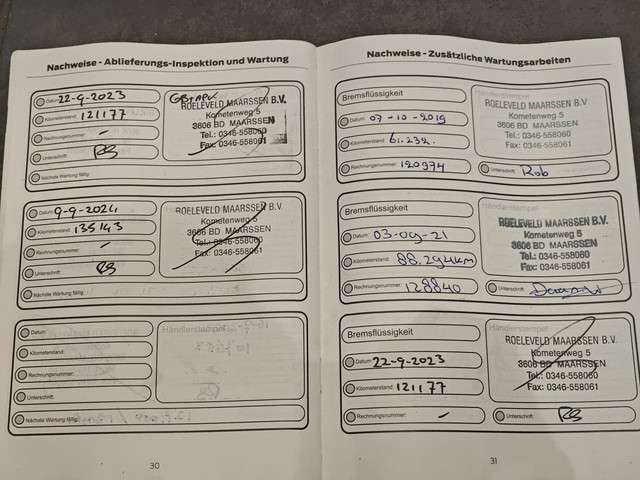 Nachweise - Ablieferungs-Inspektion und Wartung
Datum: 22-9-2023
Kilometerstand: 121177
Rechnungsnummer: -
Unterschrift: RS
Nächste Wartung fällig:
ROELEVELD MAARSSEN B.V.
Kometenweg 5
3606 BD MAARSSEN
Tel.: 0346-558060
Fax: 0346-558061
Datum: 9-9-2024
Kilometerstand: 135143
Rechnungsnummer: -
Unterschrift: RS
Nächste Wartung fällig:
ROELEVELD MAARSSEN B.V.
Kometenweg 5
3606 BD MAARSSEN
Tel.: 0346-558060
Fax: 0346-558061
Datum:
Kilometerstand:
Rechnungsnummer:
Unterschrift:
Nächste Wartung fällig:
Händlerstempel
30
Nachweise - Zusätzliche Wartungsarbeiten
Bremsflüssigkeit
Datum: 07-10-2019
Kilometerstand: 61.232.
Rechnungsnummer: 120974
Händlerstempel
ROELEVELD MAARSSEN B.V.
Kometenweg 5
3606 BD MAARSSEN
Tel.: 0346-558060
Fax: 0346-558061
Unterschrift: Rob
Bremsflüssigkeit
Datum: 03-09-21
Kilometerstand: 88.294km
Rechnungsnummer: 128840
ROELEVELD MAARSSEN B.V.
Kometenweg 5
3606 BD MAARSSEN
Tel.: 0346-558060
Fax: 0346-558061
Unterschrift:
Bremsflüssigkeit
Datum: 22-9-2023
Kilometerstand: 121177
Rechnungsnummer: -
Händlerstempel
ROELEVELD MAARSSEN B.V.
Kometenweg 5
3606 BD MAARSSEN
Tel.: 0346-558060
Fax: 0346-558061
Unterschrift: RS
31